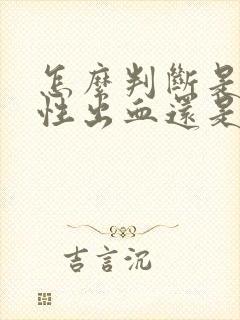 怎麼判斷是
性出血還是
吉言沉